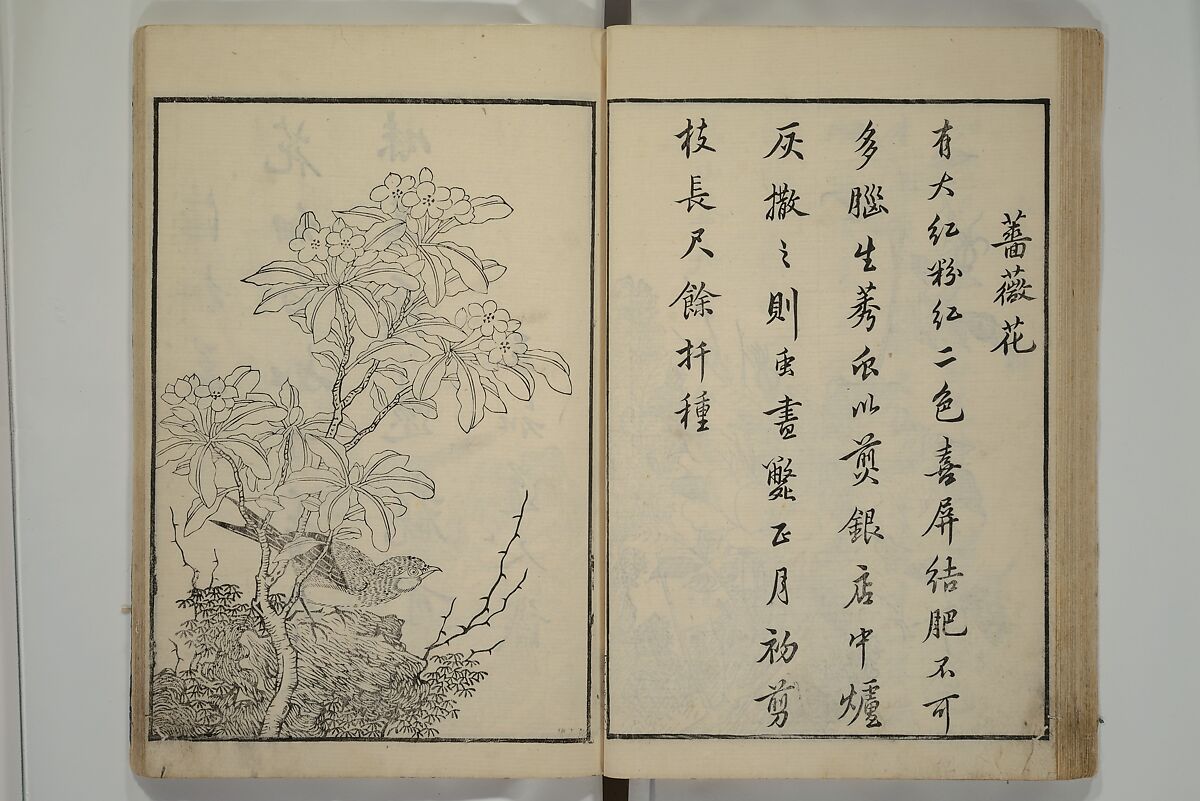 薔薇花
有大紅粉紅二色喜屏结肥不可
多腦生莠虫以煎銀店中爐
灰撒之則虫盡斃正月初剪
枝長尺餘扦種